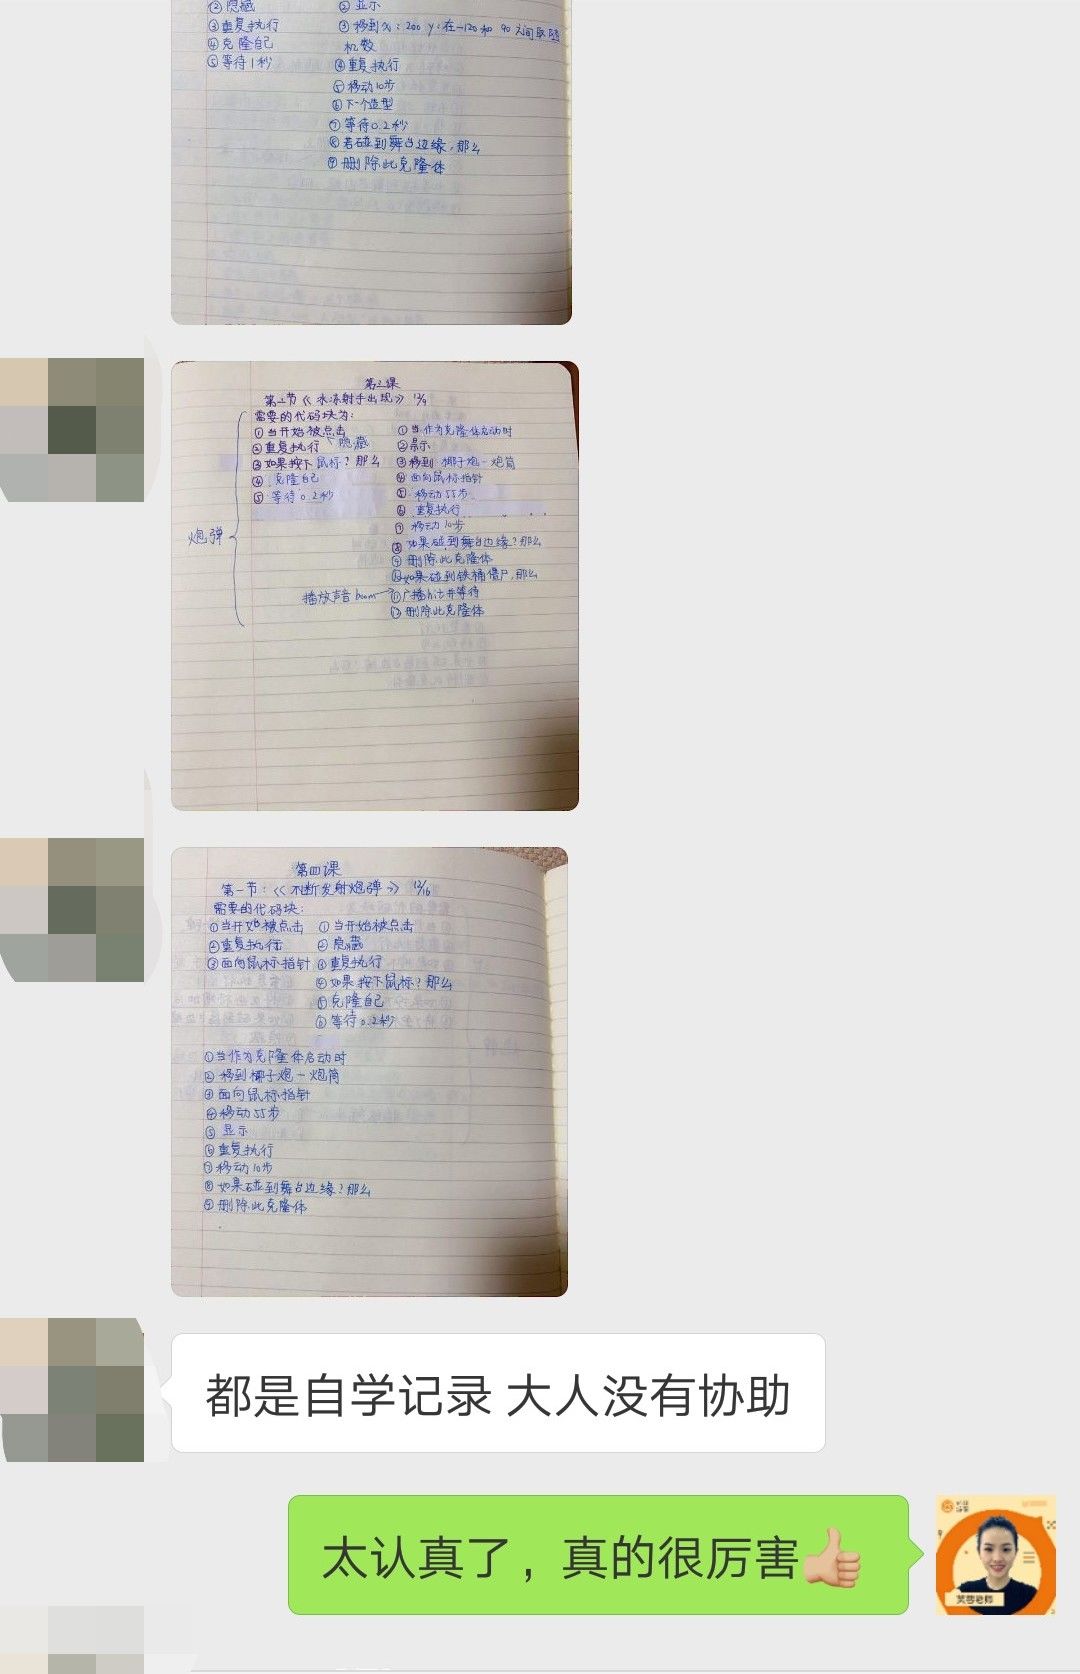 ②隐藏
③重复执行
④克隆自己
⑤等待1秒
②显示
③移到x:200 y:在-120和90之间取随
机数
④重复执行
⑤移动10步
⑥下一个造型
⑦等待0.2秒
⑧若碰到舞台边缘,那么
⑨删除此克隆体
第二课
第二节《冰冻射手出现》12/9
需要的代码块为:
①当开始被点击
隐藏
②重复执行
③如果按下鼠标?那么
④克隆自己
⑤等待0.2秒
炮弹
①当作为克隆体启动时
②显示
③移到椰子炮-炮筒
④面向鼠标指针
⑤移动55步
⑥重复执行
⑦移动10步
⑧如果碰到舞台边缘?那么
⑨删除此克隆体
⑩如果碰到铁桶僵尸,那么
播放声音boom
⑪广播hit并等待
⑫删除此克隆体
第四课
第一节:《不断发射炮弹》12/16
需要的代码块:
①当开始被点击
②重复执行
③面向鼠标指针
①当开始被点击
②隐藏
③重复执行
④如果按下鼠标?那么
⑤克隆自己
⑥等待0.2秒
①当作为克隆体启动时
②移到椰子炮-炮筒
③面向鼠标指针
④移动55步
⑤显示
⑥重复执行
⑦移动10步
⑧如果碰到舞台边缘?那么
⑨删除此克隆体
都是自学记录 大人没有协助
太认真了，真的很厉害👍🏼
芙蓉老师